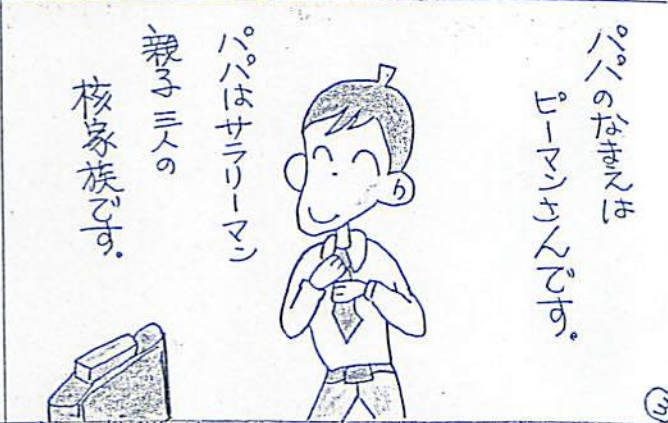 パパのなまえは
ピーマンさんです。
パパはサラリーマン
親子三人の
核家族です。
③